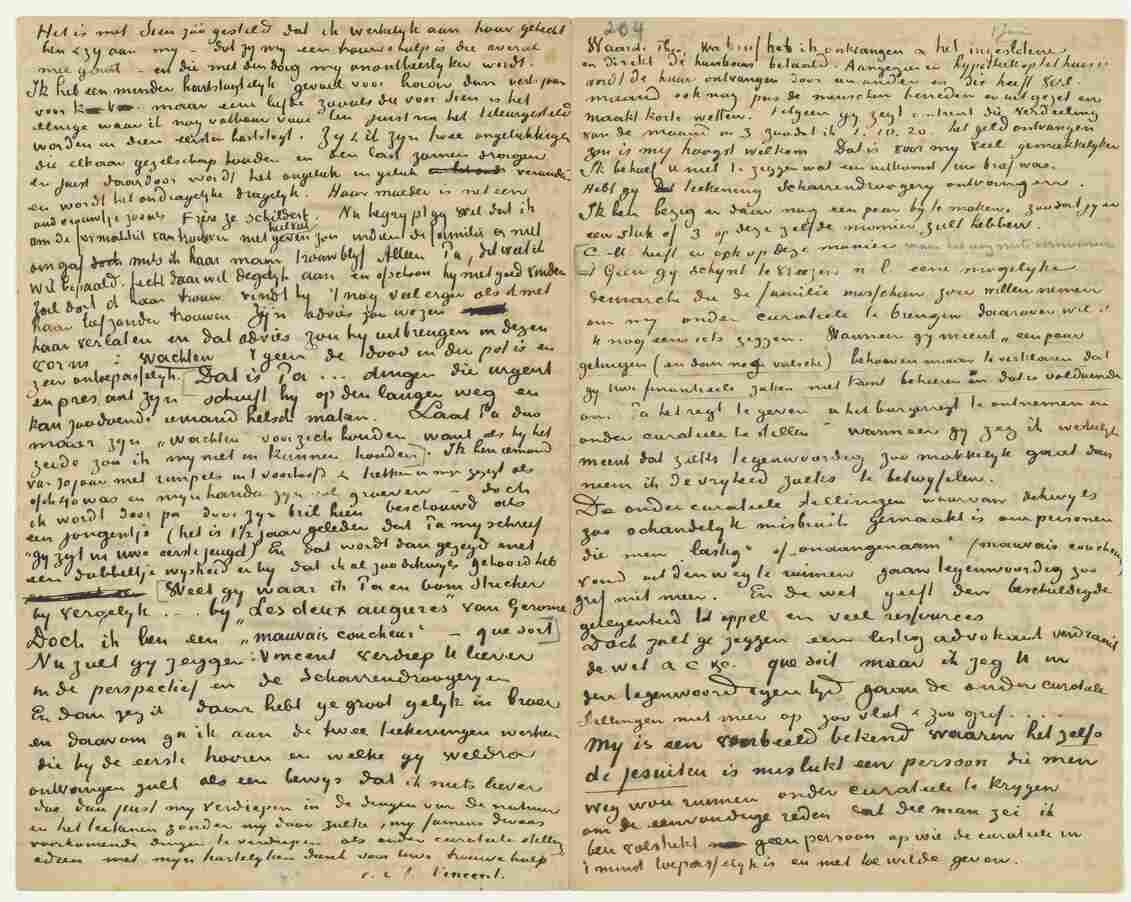 Het is met Sien zóó gesteld dat ik werkelijk aan haar gehecht
ben & zy aan my – dat zy my een trouwe hulp is die overal
mee gaat – en die met den dag my onontbeerlyker wordt.
Ik heb een minder hartstogtelyk gevoel voor haar dan verl. jaar
voor maar een liefde zooals die voor Sien is het
eenige waar ik nog vatbaar voor ben juist na het teleurgesteld
worden in dien eersten hartstogt. Zy & ik zyn twee ongelukkigen
die elkaar gezelschap houden en een last zamen dragen
en juist daardoor wordt het ongeluk in geluk veranderd
en wordt het ondragelyke dragelyk. Haar moeder is net een
oud vrouwtje zooals Frère ze schildert. Nu begrypt gy wel dat ik
om de formaliteit van trouwen niet geven zou indien de familie er niet
om gaf mits ik haar maar trouw blyf. Alleen Pa, dit weet ik
wel bepaald, hecht daar wel degelyk aan en ofschoon hy niet goed vinden
zal dat ik haar trouw vindt hy 't nog veel erger als ik met
haar leef zonder trouwen. Zyn advies zou wezen
haar verlaten en dat advies zou hy uitbrengen in dezen
vorm : wachten 't geen de dood in den pot is en
zeer ontoepasselyk. Dat is Pa ... dingen die urgent
en pressant zyn schuift hy op den langen weg en
kan zoodoende iemand helsch maken. Laat Pa dus
maar zyn „wachten" voor zich houden want als hy het
zeide zou ik my niet in kunnen houden. Ik ben iemand
van 30 jaar met rimpels in 't voorhoofd & trekken in myn gezigt als
of ik 40 was en myn handen zyn vol groeven – doch
ik wordt door pa door zyn bril heen beschouwd als
een jongentje (het is 1½ jaar geleden dat Pa my schreef
"gy zyt in uwe eerste jeugd") En dat wordt dan gezegd met
een dubbeltje wysheid er by dat ik al zoo dikwyls gehoord heb
Weet gy waar ik Pa en oom Stricker
by vergelyk .... by „Les deux augures" van Gerome
Doch ik ben een „mauvais coucheur" – que soit
Nu zult gy zeggen : Vincent verdiep U liever
in de perspectief en de Scharrendroogery en
En dan zeg ik daar hebt ge groot gelyk in broer
en daarom ga ik aan de twee teekeningen werken
die by de eerste hooren en welke gy weldra
ontvangen zult als een bewys dat ik niets liever
doe dan juist my verdiepen in de dingen van de natuur
en het teekenen zonder my door zulke, my famens dwaas
voorkomende dingen te verdiepen als onder curateele stelling
adieu met myn hartelyken dank voor Uwe trouwe hulp
t. à t. Vincent.
204
1 juni
Waarde Theo, Uw brief heb ik ontvangen & het ingeslotene
en direkt de huurbaas betaald. Aangezien er hypotheek op het huis is
wordt de huur ontvangen door een ander en die heeft verl.
maand ook nog pas de menschen beneden er uit gezet en
maakt korte wetten. 'tgeen gy zegt omtrent die verdeeling
van de maand in 3 zoodat ik 1. 10. 20. het geld ontvangen
zou is my hoogst welkom Dat is voor my veel gemakkelyker
Ik behoef U niet te zeggen wat een uitkomst Uw brief was.
Hebt gy de teekening Scharrendroogery ontvangen.
Ik ben bezig er daar nog een paar by te maken zoodat gy er
een stuk of 3 op deze zelfde manier zult hebben.
C.M. heeft er ook op deze manier
't Geen gy schynt te vreezen n.l. eene mogelyke
demarche die de familie misschien zou willen nemen
om my onder curateele te brengen daarover wil ik
U nog een iets zeggen. Wanneer gy meent „een paar
getuigen (en dan nog valsche) behoeven maar te verklaren dat
gy Uwe financieele zaken niet kunt beheeren en dat is voldoende
om Pa het regt te geven U het burgerregt te ontnemen en
onder curateele te stellen" wanneer gy zeg ik werkelyk
meent dat zulks tegenwoordig zoo makkelyk gaat dan
neem ik de vryheid zulks te betwyfelen.
De onder curateele stellingen waarvan dikwyls
zoo schandelyk misbruik gemaakt is om personen
die men „lastig" of „onaangenaam" (mauvais coucheur)
vond uit den weg te ruimen gaan tegenwoordig zoo
grif niet meer. En de wet geeft den beschuldigde
gelegenheid tot appel en veel resources
Doch zult ge zeggen een listig advokaat verdraait
de wet &c &c. que soit maar ik zeg U in
den tegenwoordigen tyd gaan de onder curateele
stellingen niet meer op zoo vlot & zoo grif. ....
My is een voorbeeld bekend waarin het zelfs
de jesuiten is mislukt een persoon die men
weg wou ruimen onder curateele te krygen
om de eenvoudige reden dat die man zei ik
ben volstrekt geen persoon op wie de curateele in
't minst toepasselyk is en niet toe wilde geven.